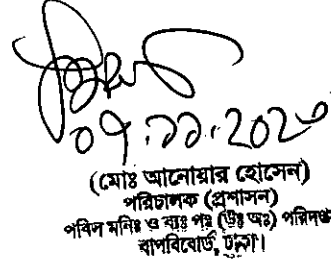 ০৭.১১.202৩
(মোঃ আনোয়ার হোসেন)
পরিচালক (প্রশাসন)
পবিস মনিঃ ও ব্যঃ পঃ (উঃ অঃ) পরিদপ্তর
বাপবিবোর্ড, ঢাকা।